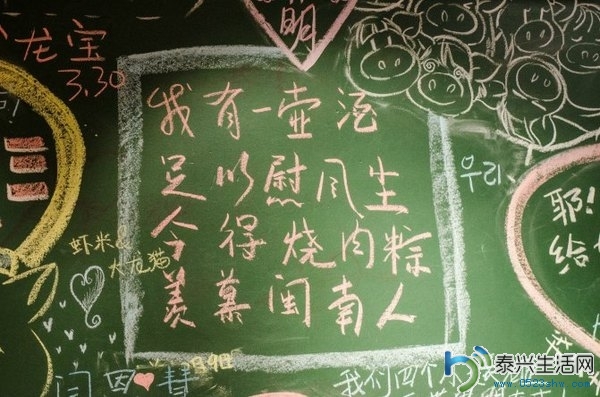 萌
龙宝
3.30
我有一壶酒
足以慰风生
今得烧肉粽
羡慕闽南人
우리
耶!
给
虾米&
大龙猫
我们四个
泰兴生活网
www.0523shw.com